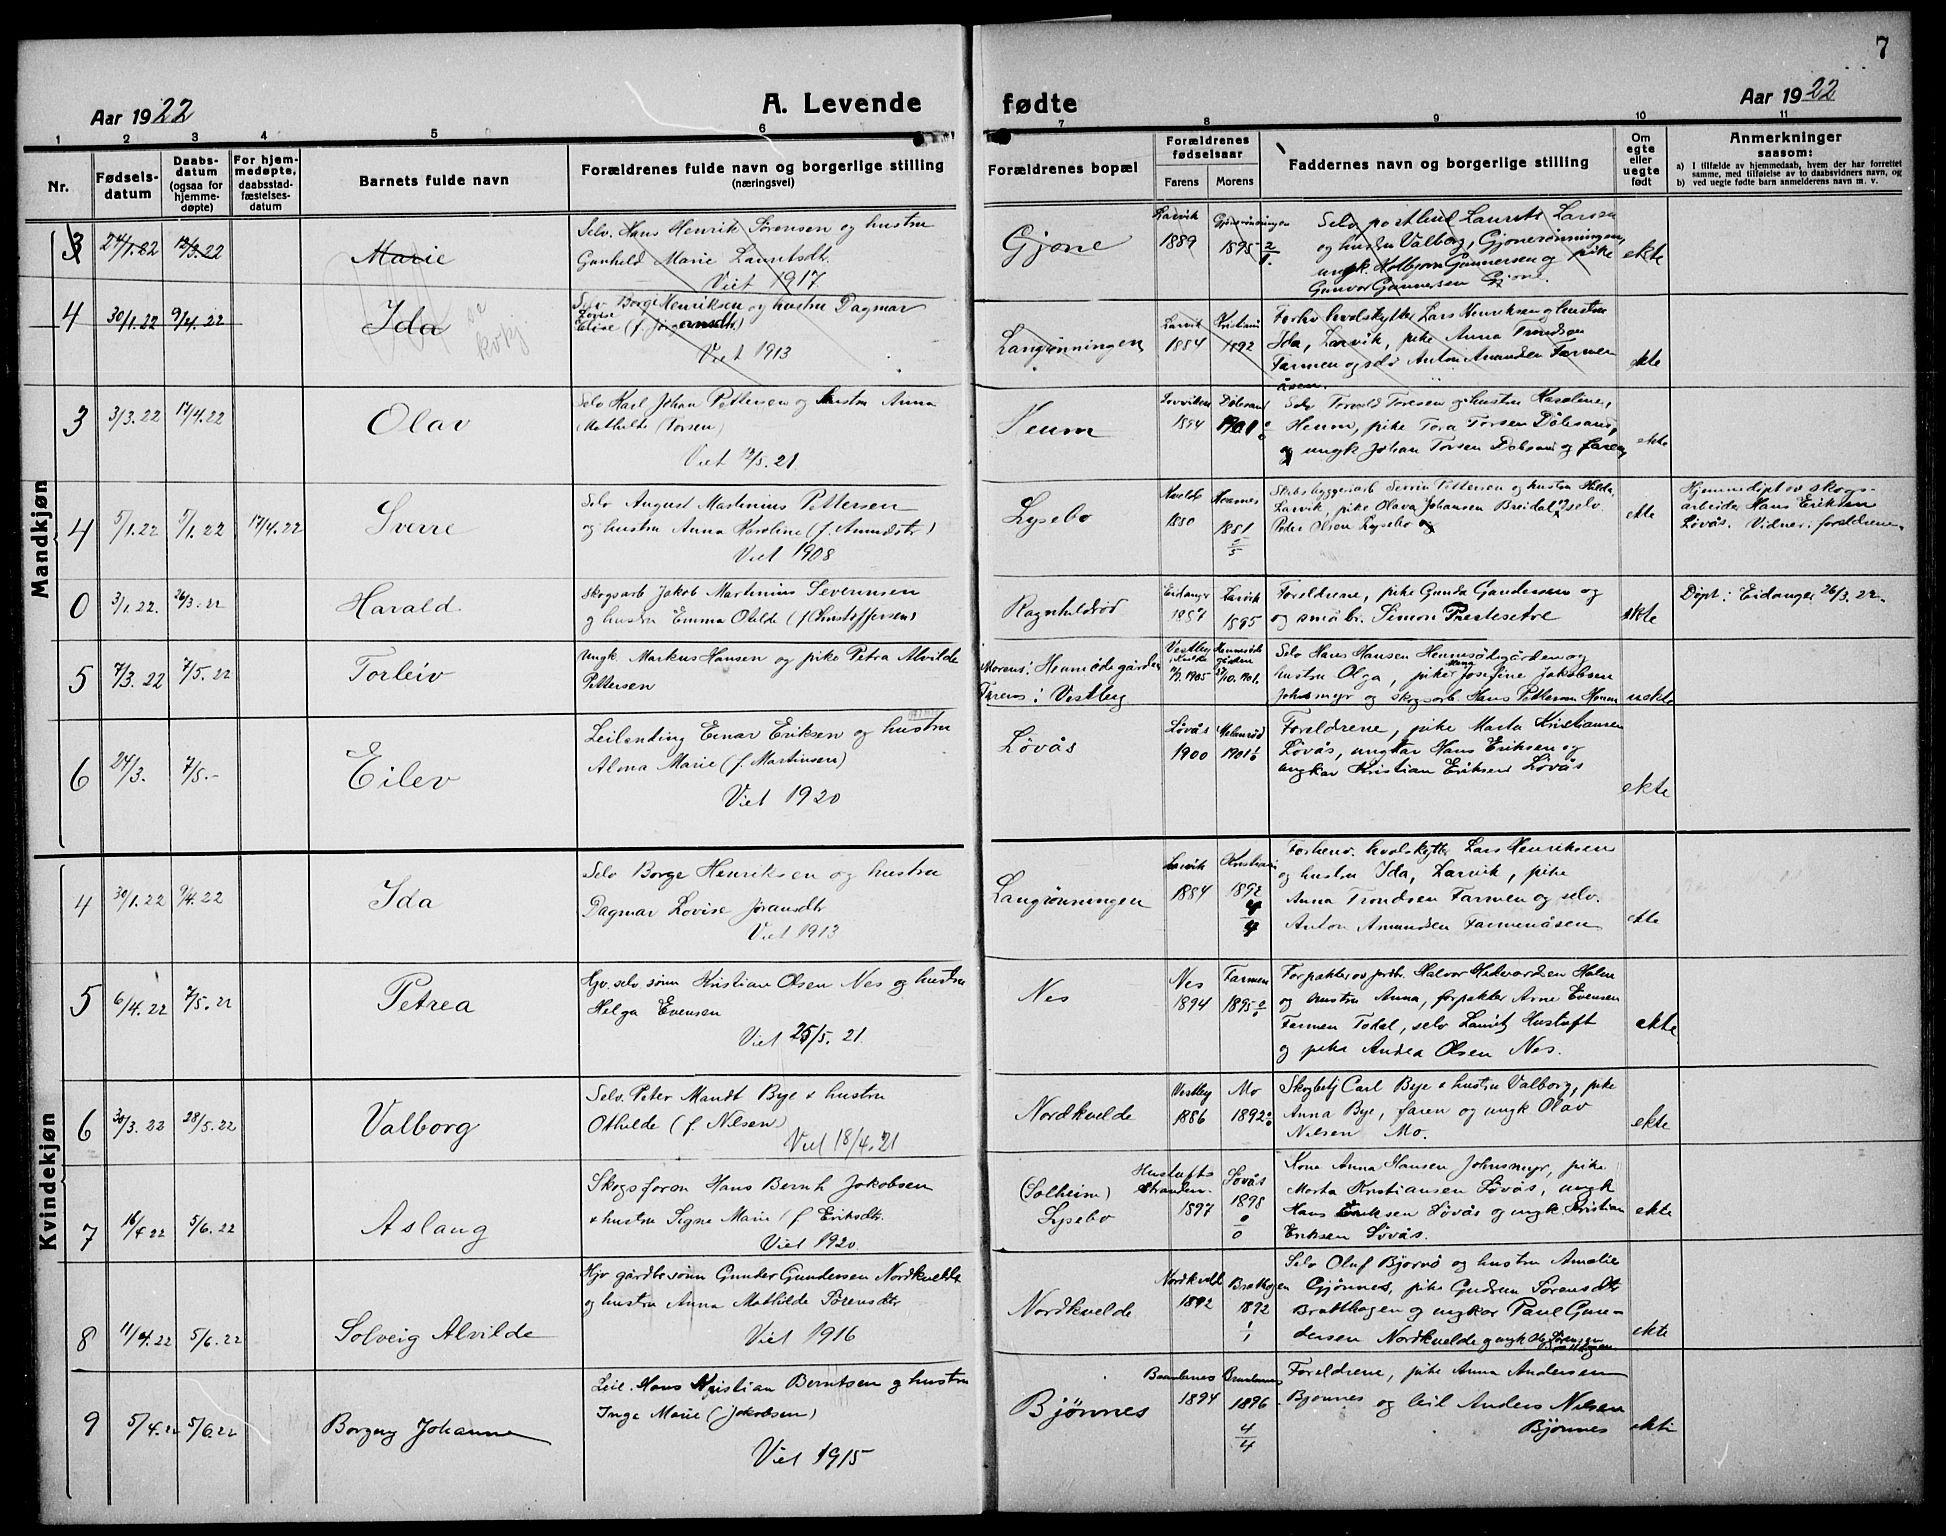 7
Aar 1922
A. Levende
fødte
Aar 1922
1 2 3 4 5 6 7 8 9 10 11
Nr.
Fødsels-
datum
Daabs-
datum
(ogsaa for
hjemme-
døpte)
For hjem-
medøpte,
daabsstad-
fæstelses-
datum
Barnets fulde navn
Forældrenes fulde navn og borgerlige stilling
(næringsvei)
Forældrenes bopæl
Forældrenes
fødselsaar
Farens Morens
Faddernes navn og borgerlige stilling
Om
egte
eller
uegte
født
Anmerkninger
saasom:
a) I tilfælde av hjemmedaab, hvem der har forrettet
samme, med tilføielse av to daabsvidners navn, og
b) ved uegte fødte barn anmelderens navn m. v.
Mandkjøn
3 24/1.22 12/3.22 Marie
Selv. Hans Henrik Sørensen og hustru
Gunhild Marie Lauritsdt.
Viet 1917
Gjone
Larvik
1889
Gjonerønningen
1895 2/1.
Selv postbud Laurits Larsen
og hustru Valborg, Gjonerønningen,
ungk. Kolbjørn Gunnersen og pike
Gunvor Gunnersen Gjone.
ekte
4 30/1.22 9/4.22 Ida
se
Selv Borge Henriksen og hustru Dagmar
Lovise
Viet 1913
Langrønningen
Larvik
1884
Kristiania
1892
Forhv hvalskytter Lars Henriksen og hustru
Ida, Larvik, pike Anna Trondsen
Farmen og selv Anton Amundsen Farmen
åsen.
ekte
3 3/3.22 17/4.22 Olav
Selv Karl Johan Pettersen og hustru Anna
Mathilde (Torsen)
Viet 12/5.21
Heum
1894
1901 0/0
Selv Torvald Toresen og hustru Karoline,
Heum, pike Tora Torsen Dölesand,
og ungk Johan Torsen Dölesand og faren
ekte
4 5/1.22 7/1.22 17/4.22 Sverre
Selv August Martinius Pettersen
og hustru Anna Karoline (f. Amundsdtr)
Viet 1908
Lysebo
1880
1881
0/5
Skibsbyggeriarb Søren Pettersen og hustru Hilda,
Larvik, pike Olava Johansen Breidal og selv
Peter Olsen Lysebo og
ekte
Hjemmedøpt av skogs-
arbeider Hans Eriksen
Løvås. Vidner: foreldrene
0 3/1.22. 26/3.22 Harald
Skogsarb Jakob Martinius Severinsen
og hustru Emma Otilde (f Christoffersen)
Ragnhildrød
Eidanger
1887
Larvik
1895
Foreldrene, pike Gunda Gundersen og
og småbr. Simon Prestesetre
ekte
Døpt: Eidanger 26/3.22.
5 7/3.22 7/5.22 Torleiv
Ungk. Markus Hansen og pike Petra Alvilde
Pettersen
Morens: Heumsøde gården
Farens: Vestby
Vestby
1905
27/10.1901.
Selv Hans Hansen Heumsødegården og
hustru Olga, pike Josefine Jakobsen
Johnsmyr og skogsarb. Hans Pettersen Heum
uekte
6 24/3. 7/5.– Eilev
Leilending Einar Eriksen og hustru
Alma Marie (f. Martinsen)
Viet 1920
Løvås
Løvås
1900
1901
Foreldrene, pike Marta Kristiansen
Løvås, ungkar Hans Eriksen og
ungkar Kristian Eriksen Løvås
ekte
Kvindekjøn
4 30/1.22 9/4.22 Ida
Selv Borge Henriksen og hustru
Dagmar Lovise Jøransdtr
Viet 1913
Langrønningen
Larvik
1884
Kristiania
1892
4/4
Forhenv. hvalskytter Lars Henriksen
og hustru Ida, Larvik, pike
Anna Trondsen Farmen og selv.
Anton Amundsen Farmenåsen
ekte
5 6/4.22 7/5.22 Petrea
Hjv. selv sønn Kristian Olsen Nes og hustru
Helga Evensen
Viet 25/5.21.
Nes
Nes
1894
Farmen
1895 0/0
Forpakter av jordbr. Halvor Hedvardsen Holm
og hustru Anna, forpakter Arne Evensen
Farmen Todal, selv Laurits Hustuft
og pike Andrea Olsen Nes.
ekte
6 30/3.22 28/5.22 Valborg
Selv. Peter Mandt Bye & hustru
Othilde (f. Nilsen)
Viet 18/4.21
Nordkvelde
Vestby
1886
Mo
1892 0/0
Skogbetj Carl Bye & hustru Valborg, pike
Anna Bye, faren og ungk Olav
Nilsen Mo.
ekte
7 16/4 22 5/6.22 Aslaug
Skogsforon Hans Bernh Jakobsen
& hustru Signe Marie (f Eriksdtr.
Viet 1920.
(Solheim)
Lysebo
Hustufts
stranden.
1897
Løvås
1898
0/0
Kone Anna Hansen Johnsmyr, pike
Marta Kristiansen Løvås, ungk
Hans Eriksen Løvås og ungk. Kristian
Eriksen Løvås.
ekte
8 11/4.22 5/6.22 Solveig Alvilde
Hjv gårdbr.sønn Gunder Gundersen Nordkvelde
og hustru Anna Mathilde Sørensdtr
Viet 1916
Nordkvelde
Nordkveld
1892
Bratthagen
1892
1/1
Selv Oluf Bjørnø og hustru Amalie
Gjønnes, pike Gudrun Sørensdtr
Bratthagen og ungkar Paul Gun-
dersen Nordkvelde og ungk Ole Sørensen
Bratthagen
ekte
9 5/4.22 5/6.22 Borgny Johanne
Leil. Hans Kristian Berntsen og hustru
Inga Marie (Jakobsen)
Viet 1915
Bjønnes
1894
1896
4/4
Foreldrene, pike Anna Andersen
Bjønnes og leil Anders Nilsen
Bjønnes
ekte